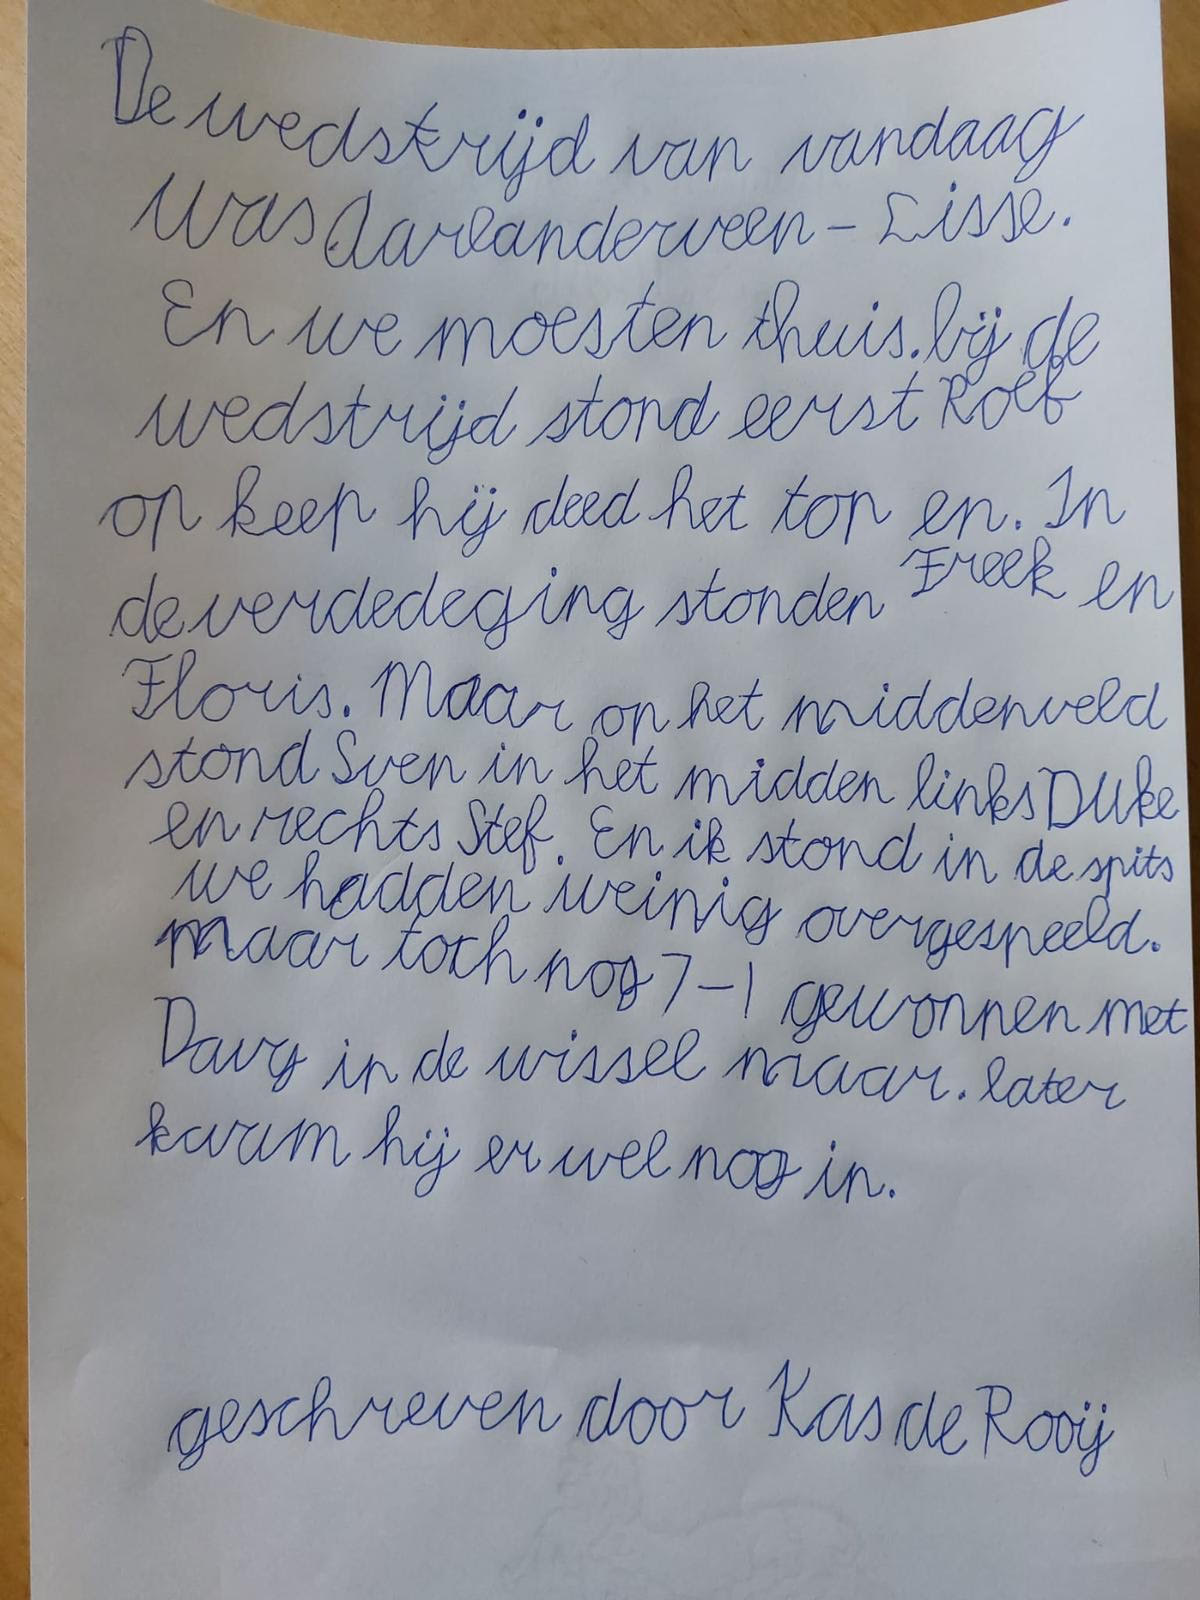 De wedstrijd van vandaag
Was Aarlanderveen - Lisse.
En we moesten thuis. bij de
wedstrijd stond eerst Roef
op keep hij deed het top en. In
de verdedeging stonden Freek en
Floris. Maar op het middenveld
stond Sven in het midden links Duke
en rechts Stef. En ik stond in de spits
we hadden weinig overgespeeld.
maar toch nog 7-1 gewonnen met
in de wissel maar. later
kwam hij er wel nog in.
geschreven door Kas de Rooij